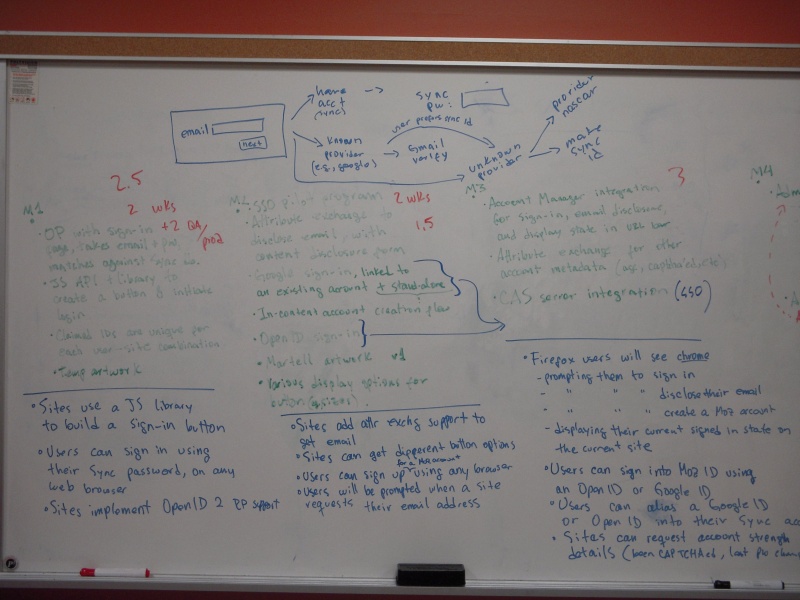 have
acct
(sync)
sync
pw:
email
next
known
provider
(e.g., google)
user prefers sync id
Email
verify
unknown
provider
provider
nascar
make
sync
id
2.5
M1
2 wks
+2 QA/
prod
OP with sign-in
page, takes email + pw,
matches against sync
JS API + library to
create a button & initiate
login
Claimed IDs are unique for
each user-site combination
Temp artwork
• Sites use a JS library
to build a sign-in button
• Users can sign in using
their Sync password, on any
web browser
• Sites implement OpenID 2 RP support
SSO pilot program
2 wks
1.5
Attribute exchange to
disclose email, with
content disclosure form
Google sign-in, linked to
an existing account + stand-alone
• In-content account creation flow
• OpenID sign-in
• Martell artwork v1
• Various display options for
button
• Sites add attr exchg support to
get email
• Sites can get different button options
for a Moz account
• Users can sign up using any browser
• Users will be prompted when a site
requests their email address
M3
3
• Account Manager integration
for sign-in, email disclosure,
and display state in URL bar
• Attribute exchange for other
account metadata
• CAS server integration (SSO)
• Firefox users will see chrome
- prompting them to sign in
- " " " disclose their email
- " " " create a Moz account
- displaying their current signed in state on
the current site
• Users can sign into Moz ID using
an OpenID or Google ID
• Users can alias a Google ID
or OpenID into their Sync
• Sites can request account strength
details (been CAPTCHAed, last pw
M4